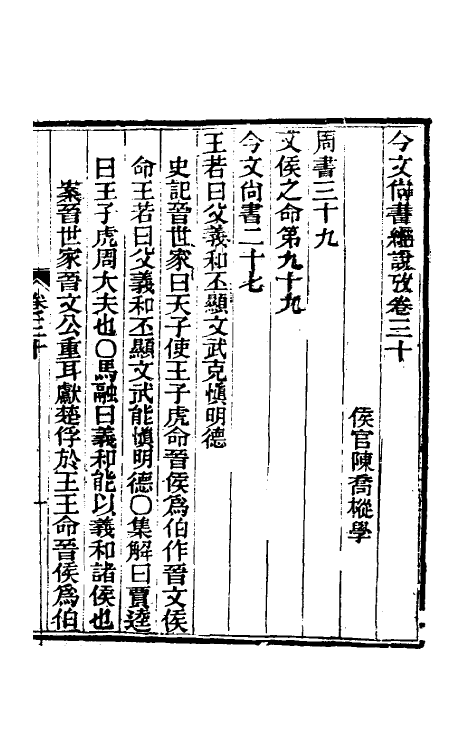 今文尙書經說攷卷三十
侯官陳喬樅學
周書三十九
文侯之命第九十九
今文尙書二十七
王若曰父義和丕顯文武克愼明德
史記晉世家曰天子使王子虎命晉侯爲伯作晉文侯
命王若曰父義和丕顯文武能愼明德〇集解曰賈逵
曰王子虎周大夫也〇馬融曰義和能以義和諸侯也
案晉世家晉文公重耳獻楚俘於王王命晉侯爲伯
卷三十